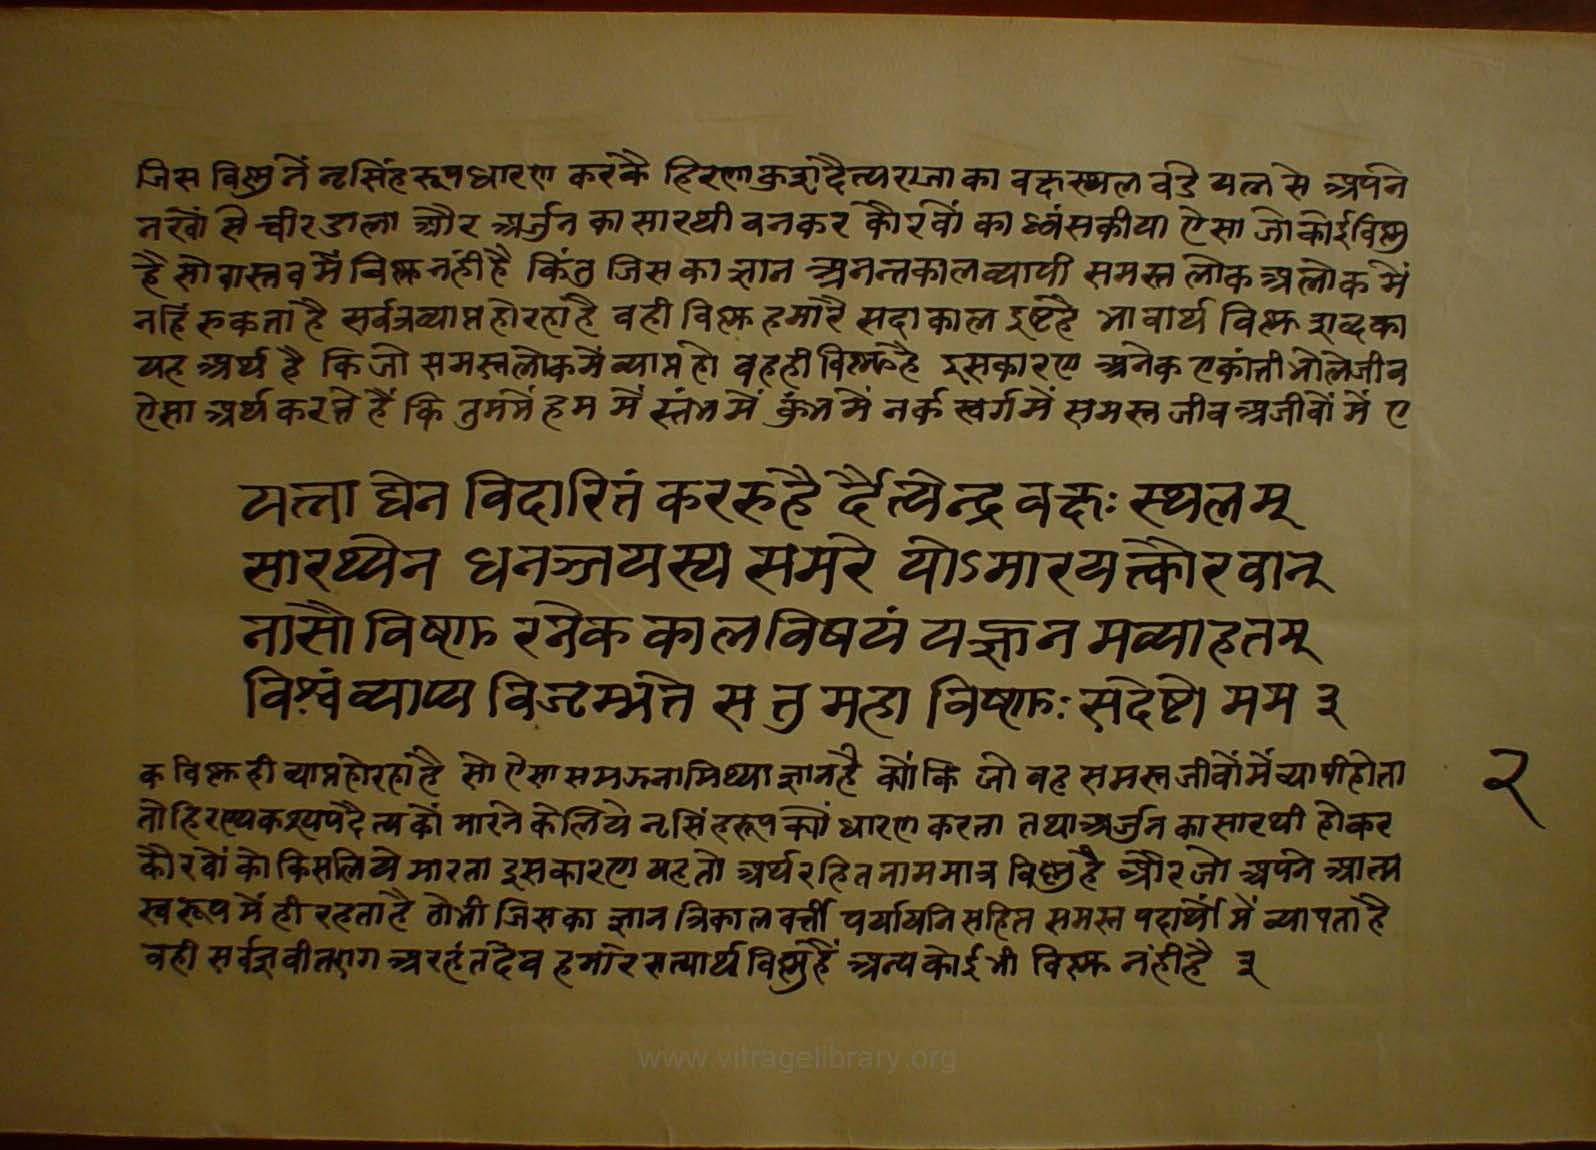 जिस विष्णु नें नृसिंहरूपधारण करकै हिरणकुशदैत्यराजा का वक्षस्थल वडे यत्न से अपने
नखों से चीरडाला और अर्जुन का सारथी वनकर कौरवों का ध्वंसकीया ऐसा जो कोई विष्णु
है सो वास्तव में विष्णु नंही है किंतु जिस का ज्ञान अनन्तकालव्यापी समस्त लोक अलोक में
नहिं रुकता है सर्वत्रव्याप्त होरहा है वही विष्णु हमारै सदा काल इष्ट है भावार्थ विष्णु शब्द का
यह अर्थ है कि जो समस्तलोकमें व्याप्त हो वह ही विष्णु है इसकारण अनेक एकांती भोलेजीव
ऐसा अर्थ करते हैं कि तुममें हम में स्तंभ में कुंभ में नर्क स्वर्ग में समस्त जीव अजीवों में ए
यत्ना द्येन विदारितं कररुहै र्दैत्येन्द्र वक्षः स्थलम्
सारथ्येन धनञ्जयस्य समरे योऽमारयत्कौरवान्
नासौ विष्णु रनेक कालविषयं यज्ज्ञान मव्याहतम्
विश्वं व्याप्य विजृम्भते स तु महा विष्णुः सदेष्टो मम ३
क विष्णु ही व्याप्तहोरहा है सो ऐसा समझना मिथ्या ज्ञान है क्यों कि जो वह समस्त जीवों में व्यापी होता
तो हिरण्यकश्यपदैत्य कों मारने के लिये नृसिंहरूप क्यों धारण करता तथा अर्जुन का सारथी होकर
कौरवों को किसलिये मारता इसकारण यह तो अर्थरहित नाममात्र विष्णु है और जो अपने आत्म
स्वरूप में ही रहता है तोभी जिसका ज्ञान त्रिकालवर्त्ती पर्यायनि सहित समस्त पदार्थों में व्यापता है
वही सर्वज्ञ वीतराग अरहंतदेव हमारे सत्यार्थ विष्णु हैं अन्य कोई भी विष्णु नंही है ३
२
www.vitragelibrary.org